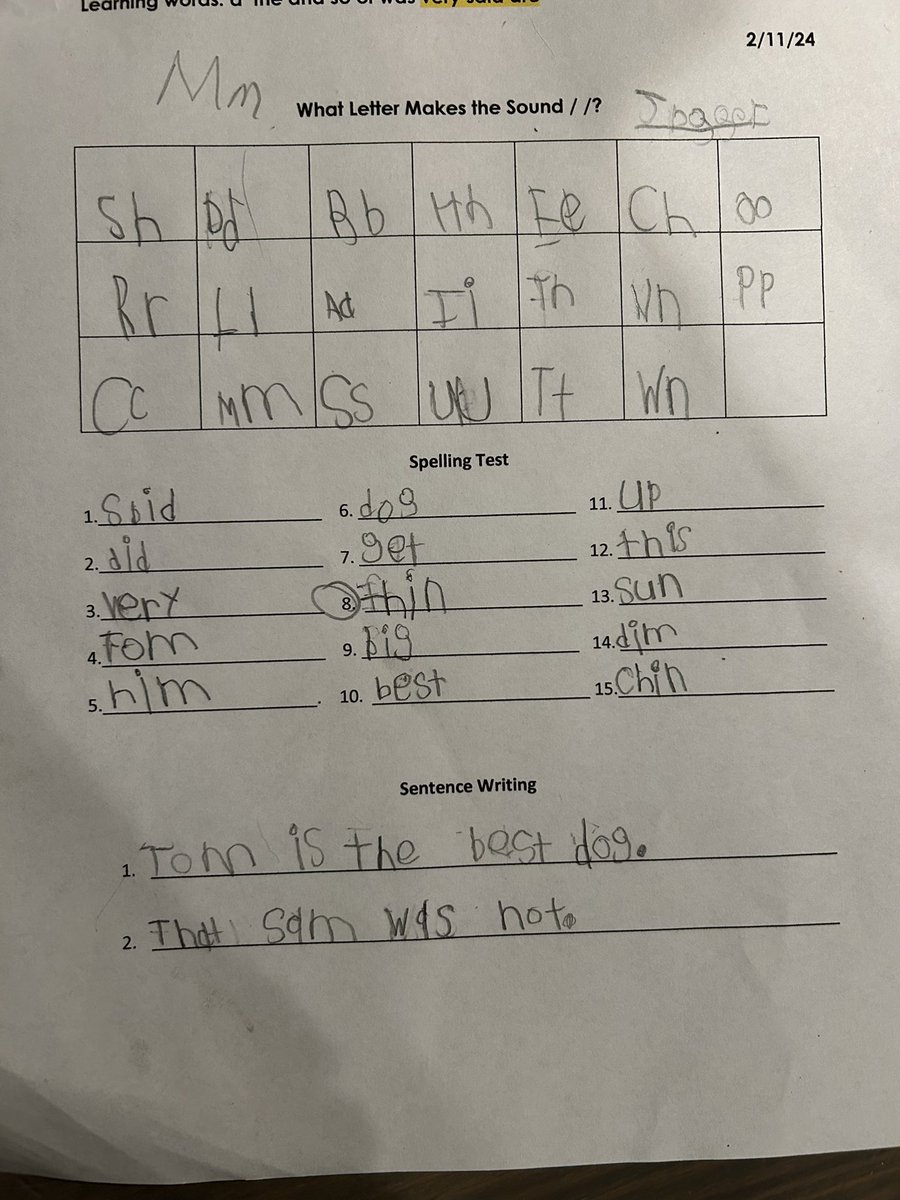 Learning words: a the and so of was very said are
2/11/24
Mm
What Letter Makes the Sound / /?
Sh Dd Bb Hh Ee Ch oo
Rr Ll Aa Ii Th Nn Pp
Cc Mm Ss Uu Tt Wn
Spelling Test
1. Said 6. dog 11. up
2. did 7. get 12. this
3. very 8. thin 13. sun
4. Tom 9. big 14. dim
5. him 10. best 15. Chin
Sentence Writing
1. Tom is the best dog.
2. That Sam was hot.